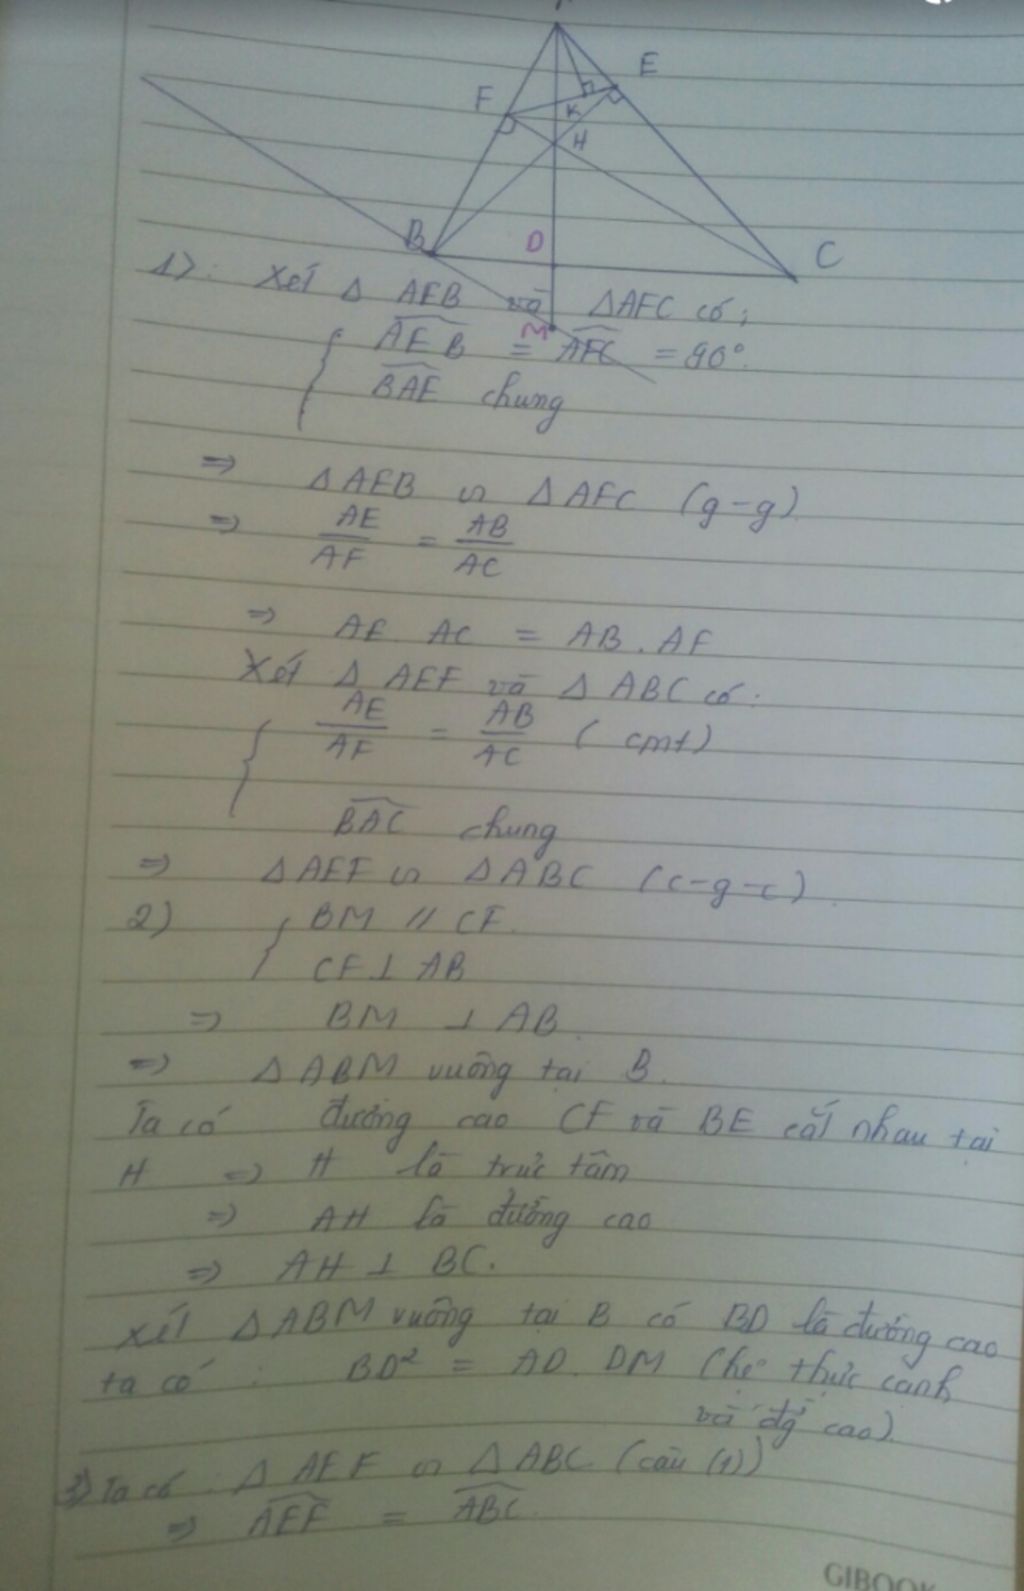 E
F
K
H
B
D
C
1): Xét Δ AEB và ΔAFC có:
M
AEB = AFC = 90°.
BAE chung
=> Δ AEB ∽ Δ AFC (g-g)
=> AE/AF = AB/AC
=> AE. AC = AB. AF
Xét Δ AEF và Δ ABC có:
AE/AF = AB/AC (cmt)
BAC chung
=> Δ AEF ∽ Δ ABC (c-g-c).
2) BM // CF.
CF ⊥ AB
=> BM ⊥ AB.
=> Δ ABM vuông tại B.
Ta có đường cao CF và BE cắt nhau tại
H => H là trực tâm
=> AH là đường cao
=> AH ⊥ BC.
Xét Δ ABM vuông tại B có BD là đường cao
ta có: BD² = AD. DM (hệ thức cạnh
và đg cao)
3) Ta có: Δ AEF ∽ Δ ABC. (câu (1))
=> AEF = ABC.